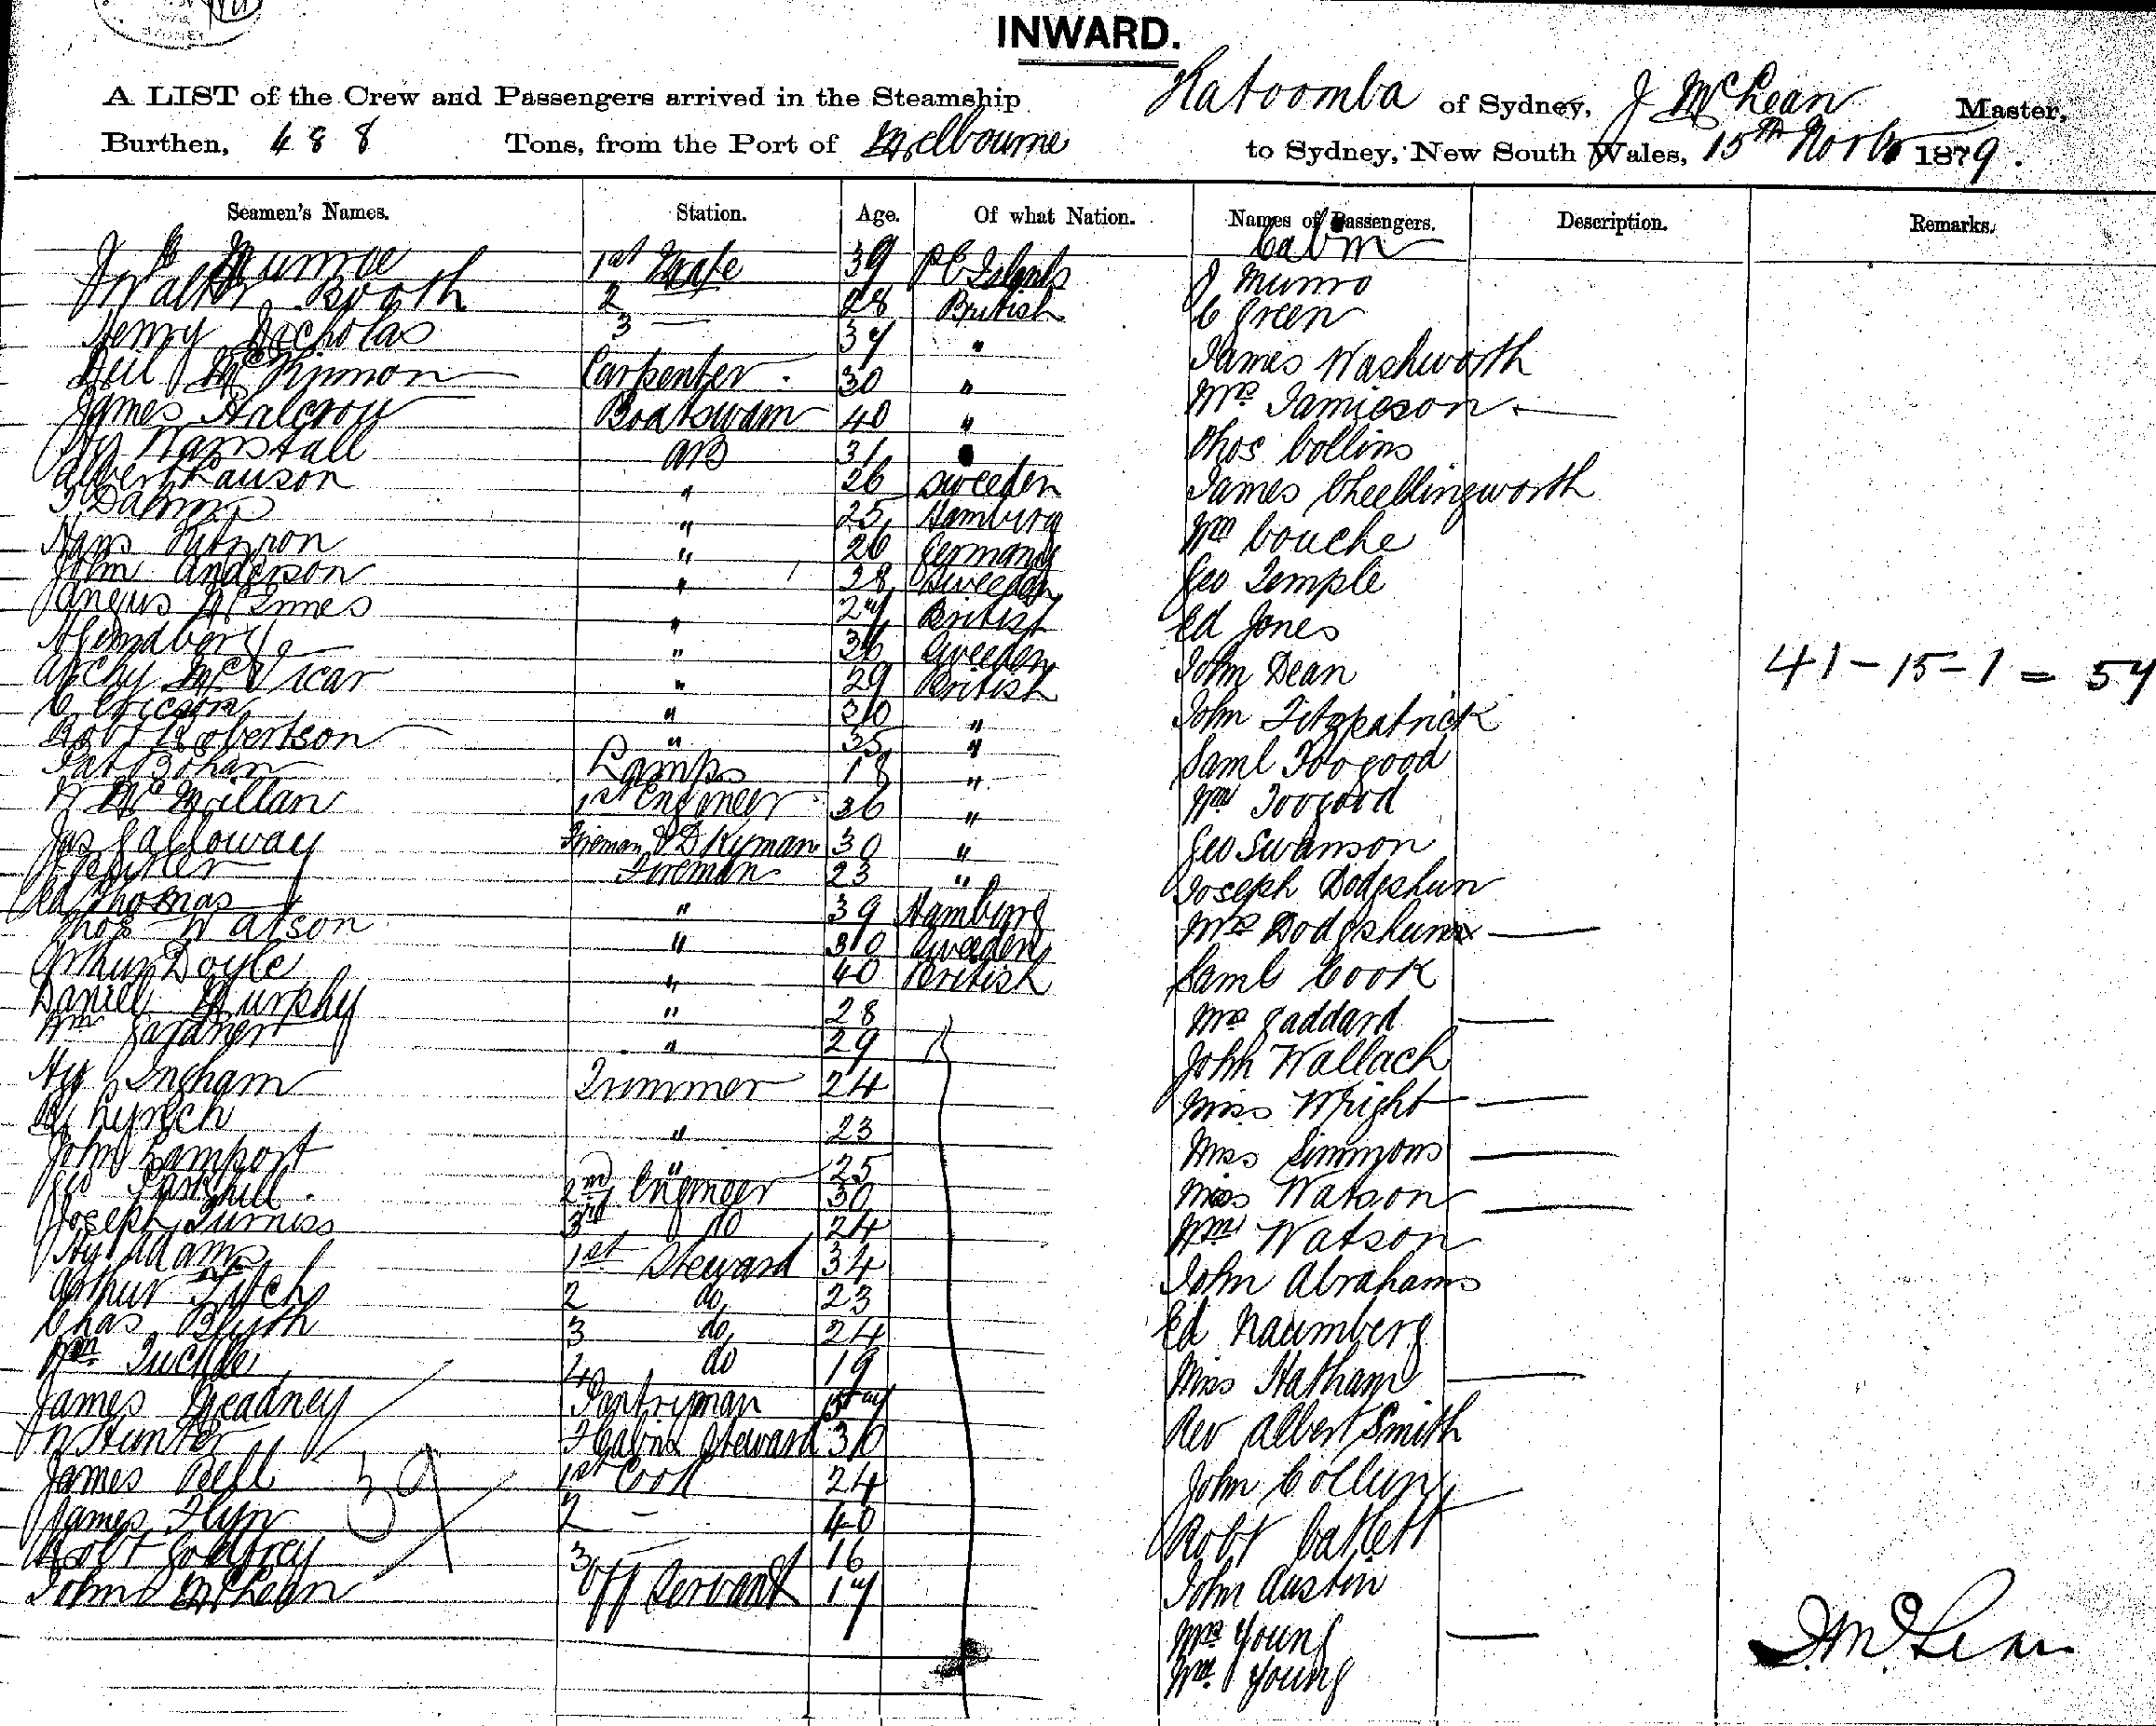 SYDNEY
INWARD.
A LIST of the Crew and Passengers arrived in the Steamship Katoomba of Sydney, J McLean Master,
Burthen, 488 Tons, from the Port of Melbourne to Sydney, New South Wales, 15th Novbr 1879.
Seamen's Names. Station. Age. Of what Nation. Names of Passengers. Description. Remarks.
Cabin
Munroe 1st Mate 39 Islands J Munro
Walter Booth 2 28 British C Green
Henry Nicholas 3 — 37 " James Washworth
Neil McKinnon Carpenter 30 " Mrs Jamieson —
James Halcrow Boatswain 40 " Thos Collins
Hy Wanstall AB 31 James Chellingworth
Albert Lauson " 26 Sweeden Wm Couche
" 25 Hamburg Geo Temple
Hans " 26 Germany Ed Jones
John Anderson " 28 Sweeden John Dean
Angus McInnes " 27 British John Fitzpatrick
" 36 Sweeden Saml Toogood
Archy McVicar " 29 British Wm Toogood
C Ericson " 30 " Geo Swanson
Robt Robertson " 35 " Joseph Dodgshun
Pat Bohan Lamps 18 " Mrs Dodgshun —
McMillan 1st Engineer 36 " Saml Cook
Jas Galloway Fireman & Dkyman 30 " Mrs Gaddard —
Fireman 23 " John Wallach
Thomas " 39 Hamburg Miss Wright —
Thos Watson " 30 Sweeden Miss Simmons —
Arthur Doyle " 40 British Miss Watson —
Daniel Murphy " 28 Wm Watson
Wm Gardner " 29 John Abrahams
Hy Ingham Trimmer 24 Ed Naumberg
Lynch " 23 Miss Hatham —
John Lamport " 25 Rev Albert Smith
Geo 2nd Engineer 30 John
Joseph Turniss 3rd do 24 Robt
Hy Adams 1st Steward 34 John Austin
Arthur Fitch 2 do 23 Mrs Young —
Chas Blyth 3 do 24 Wm Young
Wm 4 do 19
James Pantryman
Hunter Steward 30
James Bell 1st Cook 24
James Flyn 2 — 40
Robt Godfrey 3 — 16
John McLean Off Servant 17
39
41-15-1 = 57
J. McLean